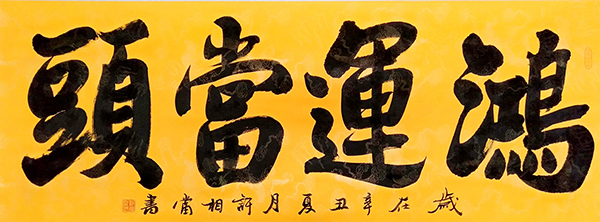 鴻運當頭
歲在辛丑夏月許相當書